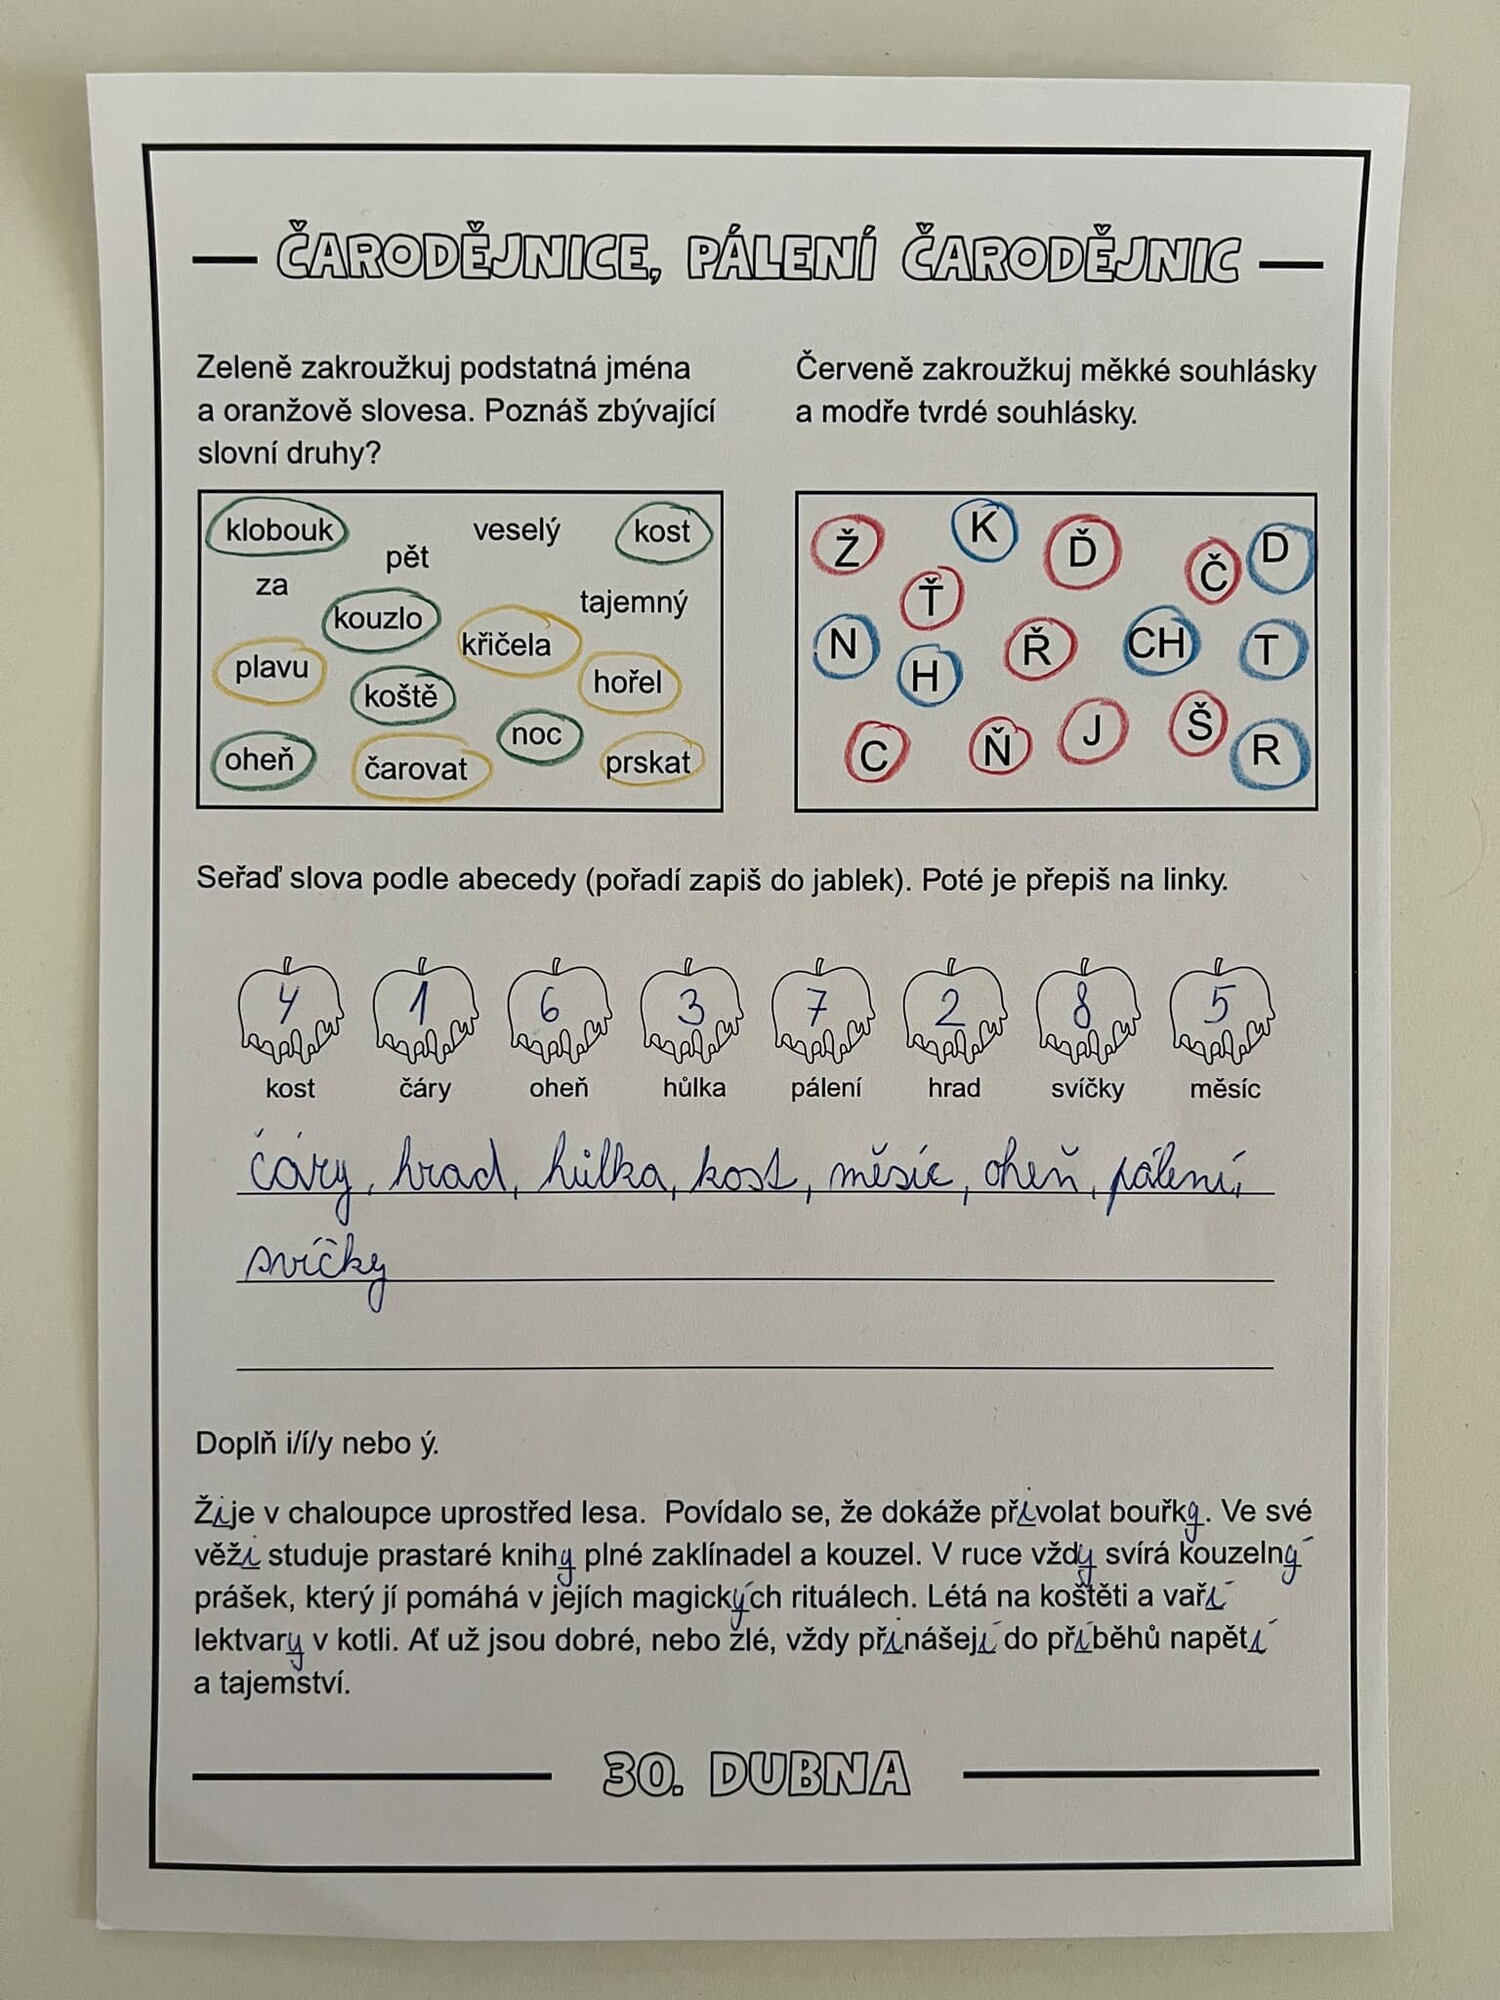 ČARODĚJNICE, PÁLENÍ ČARODĚJNIC
Zeleně zakroužkuj podstatná jména
a oranžově slovesa. Poznáš zbývající
slovní druhy?
klobouk
veselý
kost
pět
za
kouzlo
tajemný
křičela
plavu
koště
hořel
oheň
čarovat
noc
prskat
Červeně zakroužkuj měkké souhlásky
a modře tvrdé souhlásky.
Ž K Ď Č D
Ť
N H Ř CH T
C Ň J Š R
Seřaď slova podle abecedy (pořadí zapiš do jablek). Poté je přepiš na linky.
4 1 6 3 7 2 8 5
kost čáry oheň hůlka pálení hrad svíčky měsíc
čáry, hrad, hůlka, kost, měsíc, oheň, pálení,
svíčky
Doplň i/í/y nebo ý.
Žije v chaloupce uprostřed lesa. Povídalo se, že dokáže přivolat bouřky. Ve své
věži studuje prastaré knihy plné zaklínadel a kouzel. V ruce vždy svírá kouzelný
prášek, který jí pomáhá v jejích magických rituálech. Létá na koštěti a vaří
lektvary v kotli. Ať už jsou dobré, nebo zlé, vždy přinášejí do příběhů napětí
a tajemství.
30. DUBNA